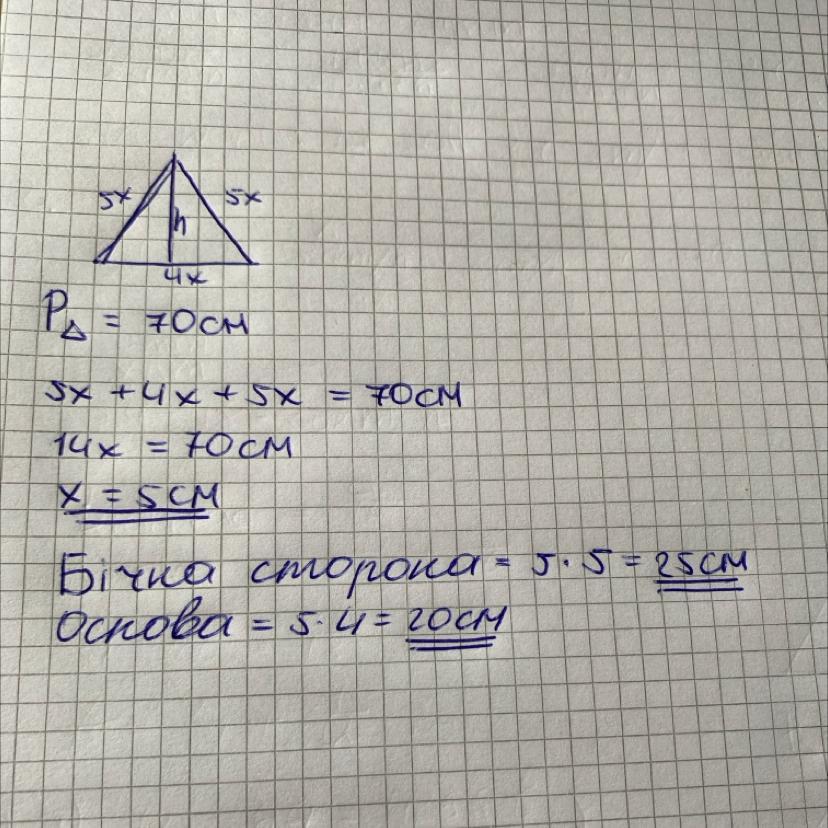 5x 5x
h
4x
P△ = 70см
5x + 4x + 5x = 70см
14x = 70см
x = 5см
Бічна сторона = 5 · 5 = 25см
Основа = 5 · 4 = 20см